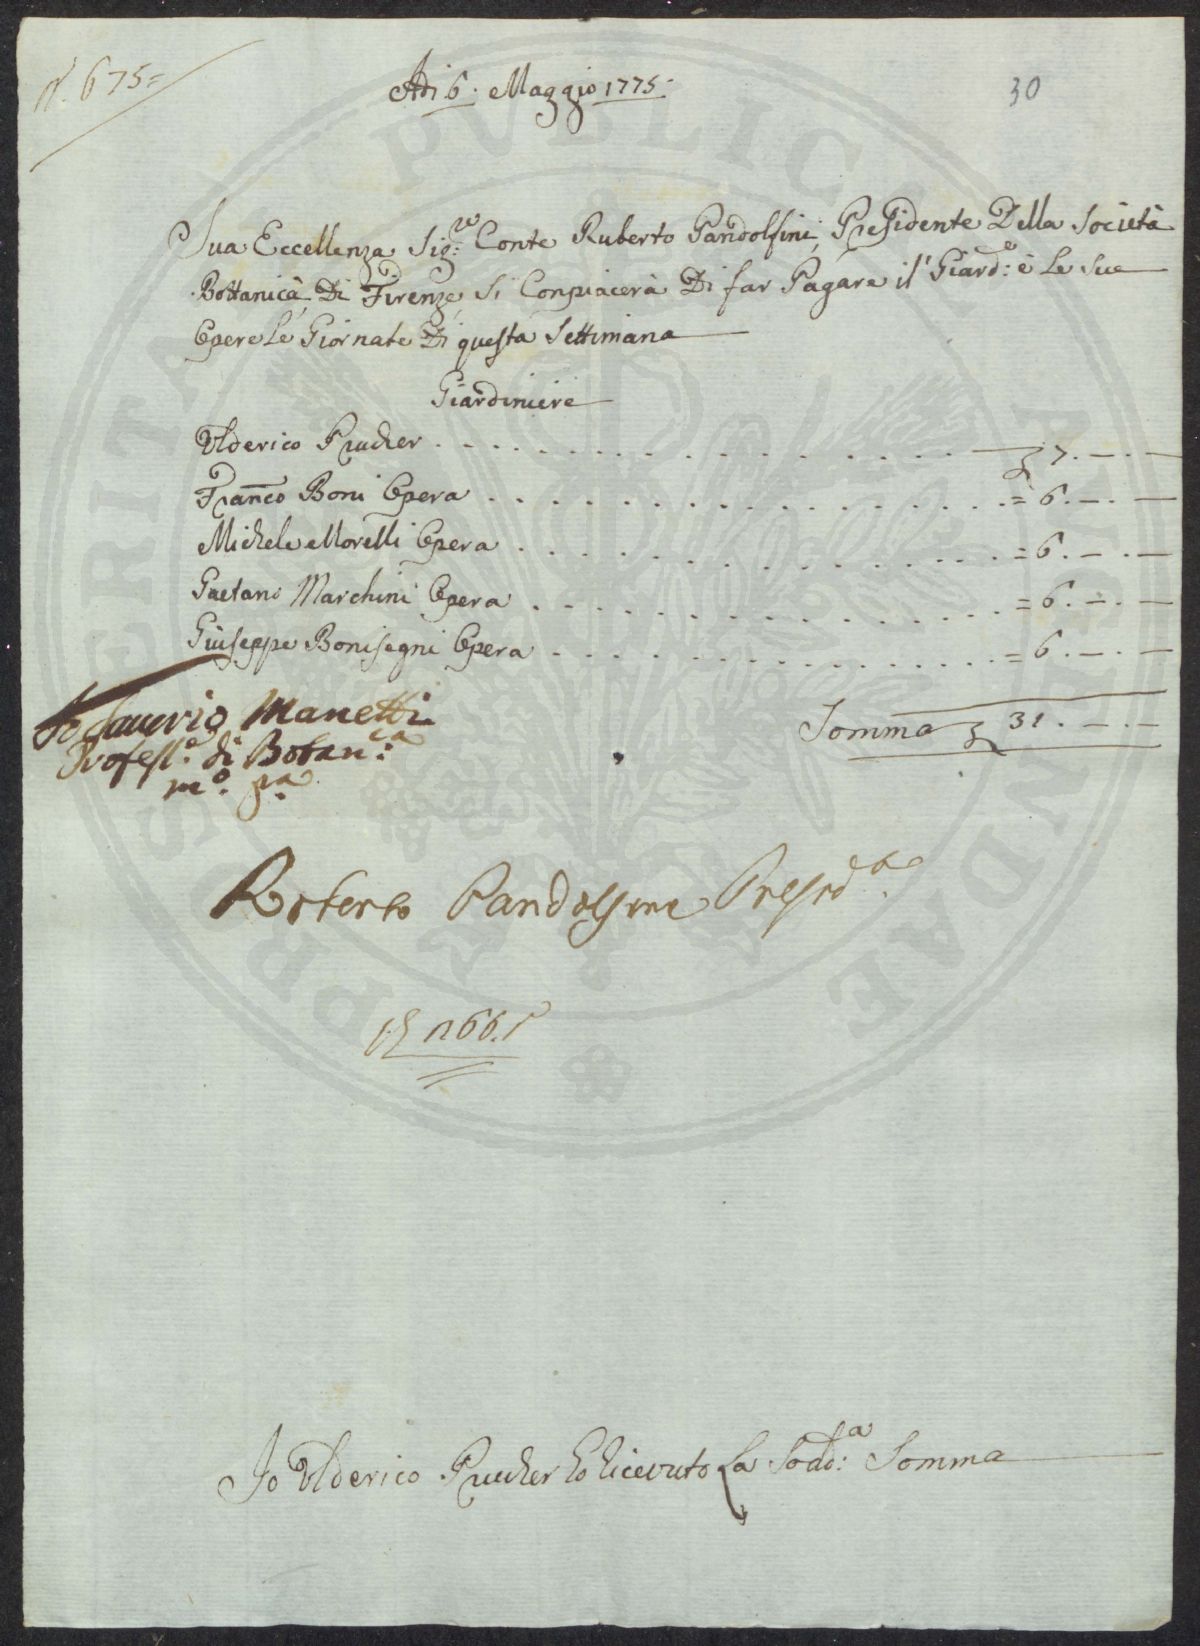 N. 675=
30
Adi 6. Maggio 1775.
Sua Eccellenza Sig:re Conte Ruberto Pandolfini, Presidente Della Società
Bottanica Di Firenze, Si Conpiacerà Di far Pagare il Giard:o è Le Sue
Opere Le Giornate Di questa Settimana
Giardiniere
Ulderico Prucher . . . . . . . . . . 7. — . —
Franco Boni Opera . . . . . . . . . . = 6. — . —
Michele Morelli Opera . . . . . . . . . . = 6. — . —
Gaetano Marchini Opera . . . . . . . . . . = 6. — . —
Giuseppe Bonisegni Opera . . . . . . . . . . = 6. — . —
Somma 31. — . —
Io Saverio Manetti
Profess:e di Botan:ca
mo. pa.
Roberto Pandolfini Presid:te
n 66.
Io Ulderico Prucher ho ricevuto La Sodd:a Somma
PROSPERITATI PUBLICAE AUGENDAE